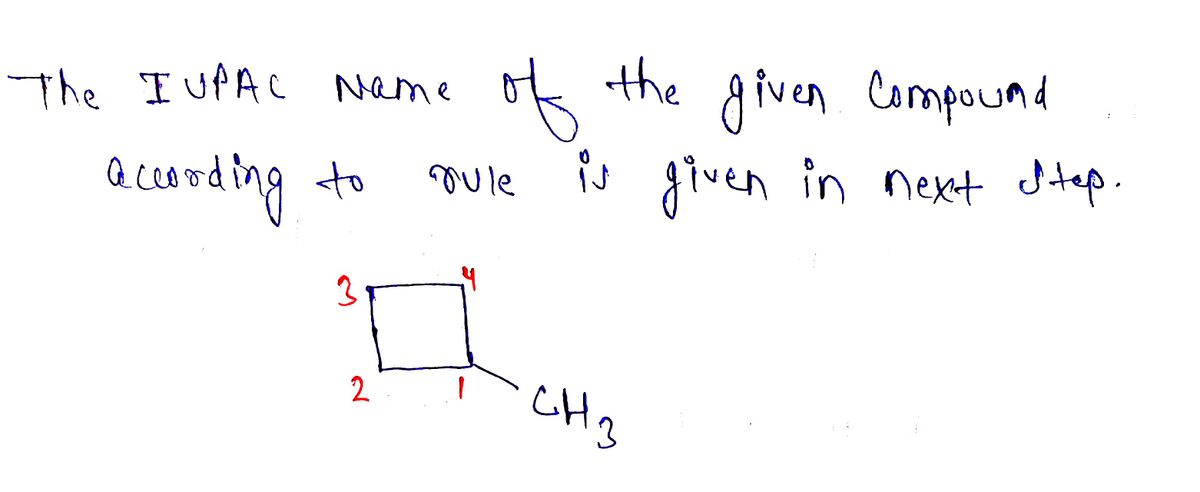 The IUPAC Name of the given Compound
according to rule is given in next step.
3 4
2 1
CH3